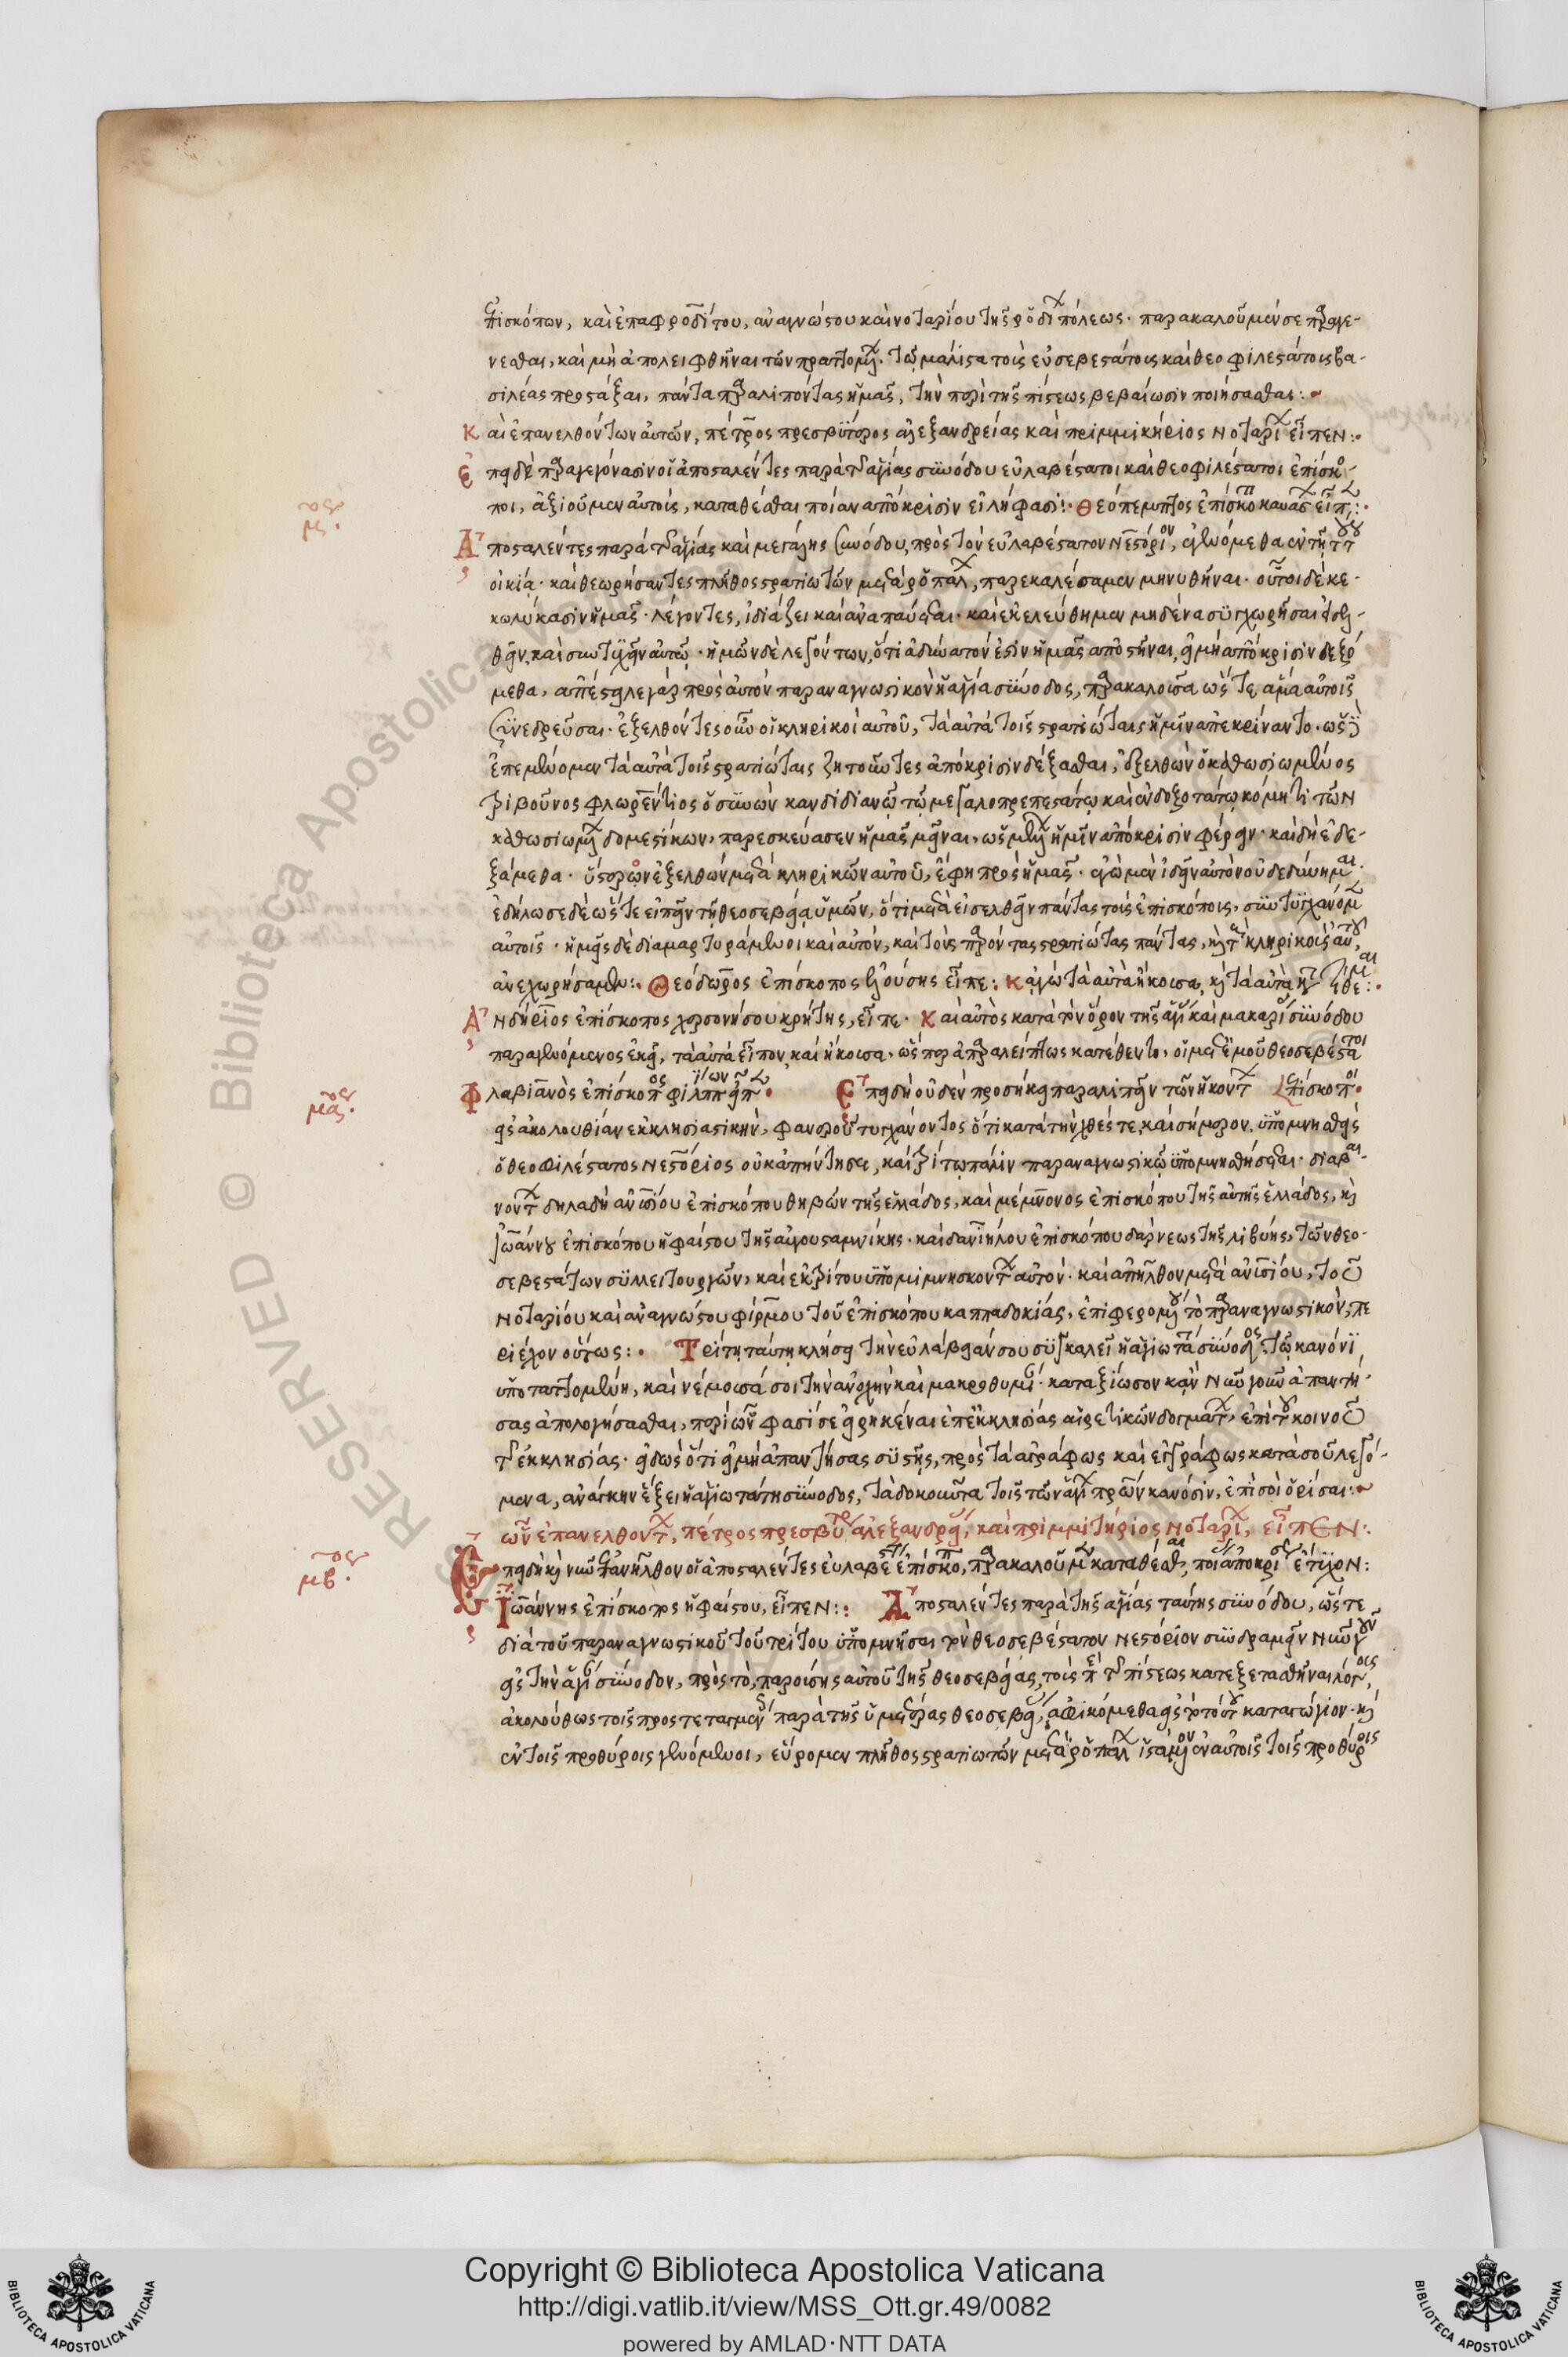 ἐπισκόπων, καὶ ἐπαφροδίτου, ἀναγνώστου καὶ νοταρίου τῆς ῥοδίων πόλεως· παρακαλοῦμέν σε παραγε-
νέσθαι, καὶ μὴ ἀπολειφθῆναι τῶν πραττομένων. τῷ μάλιστα τοὺς εὐσεβεστάτους καὶ θεοφιλεστάτους βα-
σιλέας προστάξαι, πάντα παραλιπόντας ἡμᾶς, τὴν περὶ τῆς πίστεως βεβαίωσιν ποιήσασθαι:
καὶ ἐπανελθόντων αὐτῶν, πέτρος πρεσβύτερος ἀλεξανδρείας καὶ πριμμικήριος νοταρίων εἶπεν:
ἐπειδὴ παραγεγόνασιν οἱ ἀποσταλέντες παρὰ τῆς ἁγίας συνόδου εὐλαβέστατοι καὶ θεοφιλέστατοι ἐπίσκο-
ποι, ἀξιοῦμεν αὐτούς, καταθέσθαι ποίαν ἀπόκρισιν εἰλήφασι: Θεόπεμπτος ἐπίσκοπος καβάσων εἶπεν:
μς.
Ἀποσταλέντες παρὰ τῆς ἁγίας καὶ μεγάλης συνόδου, πρὸς τὸν εὐλαβέστατον νεστόριον, ἐγενόμεθα ἐν τῇ τούτου
οἰκίᾳ· καὶ θεωρήσαντες πλῆθος στρατιωτῶν μετὰ ῥοπάλων, παρεκαλέσαμεν μηνυθῆναι. οὗτοι δὲ κε-
κωλύκασιν ἡμᾶς· λέγοντες, ἰδιάζει καὶ ἀναπαύεται. καὶ ἐκελεύσθημεν μηδένα συγχωρῆσαι εἰσελ-
θεῖν, καὶ συντυχεῖν αὐτῷ· ἡμῶν δὲ λεγόντων, ὅτι ἀδύνατόν ἐστιν ἡμᾶς ἀποστῆναι, εἰ μὴ ἀπόκρισιν δεξό
μεθα, ἀπέστειλε γὰρ πρὸς αὐτὸν παραναγνωστικὸν ἡ ἁγία σύνοδος, παρακαλοῦσα ὥστε ἅμα αὐτοῖς
συνεδρεῦσαι· ἐξελθόντες οὖν οἱ κληρικοὶ αὐτοῦ, τὰ αὐτὰ τοῖς στρατιώταις ἡμῖν ἀπεκρίναντο. ὡς δ
ἐπεμένομεν τὰ αὐτὰ τοῖς στρατιώταις ζητοῦντες ἀπόκρισιν δέξασθαι, ἐξελθὼν ὁ καθωσιωμένος
τριβοῦνος φλωρέντιος ὁ συνὼν κανδιδιανῷ τῷ μεγαλοπρεπεστάτῳ καὶ ἐνδοξοτάτῳ κόμητι τῶν
καθωσιωμένων δομεστίκων, παρεσκεύασεν ἡμᾶς μεῖναι, ὡς μέλλων ἡμῖν ἀπόκρισιν φέρειν· καὶ δὴ ἐδε-
ξάμεθα. ὕστερον ἐξελθὼν μετὰ κληρικῶν αὐτοῦ, ἔφη πρὸς ἡμᾶς· ἐγὼ μὲν ἰδεῖν αὐτὸν οὐ δεδύνημαι.
ἐδήλωσε δὲ ὥστε εἰπεῖν τῇ θεοσεβείᾳ ὑμῶν, ὅτι μετὰ εἰσελθεῖν πάντας τοὺς ἐπισκόπους, συντυγχάνομεν
αὐτοῖς· ἡμεῖς δὲ διαμαρτυράμενοι καὶ αὐτόν, καὶ τοὺς παρόντας στρατιώτας πάντας, καὶ τοὺς κληρικοὺς αὐτοῦ,
ἀνεχωρήσαμεν: Θεόδωρος ἐπίσκοπος
Ἀνδήριος ἐπίσκοπος χερσονήσου κρήτης, εἶπε· καὶ αὐτὸς κατὰ τὸν ὅρον τῆς ἁγίας καὶ μακαρίας συνόδου
παραγενόμενος ἐκεῖ, τὰ αὐτὰ εἶπον, καὶ ἤκουσα, ὥσπερ ἀπαραλείπτως κατέθεντο, οἱ μετ' ἐμοῦ θεοσεβέστατοι
ἐπίσκοποι
μα.
Φλαβιανὸς ἐπίσκοπος φιλίππων εἶπεν. Ἐπειδὴ οὐδὲν προσήκει παραλιπεῖν τῶν ἡκόντων
εἰς ἀκολουθίαν ἐκκλησιαστικήν, φανεροῦ τυγχάνοντος ὅτι κατὰ τὴν χθές τε, καὶ σήμερον, ὑπομνησθεὶς
ὁ θεοφιλέστατος νεστόριος οὐκ ἀπήντησε, καὶ τρίτῳ πάλιν παραναγνωστικῷ ὑπομνησθήσεται·
δηλαδὴ ἀνυσίου ἐπισκόπου θηβῶν τῆς ἑλλάδος, καὶ μέμνονος ἐπισκόπου τῆς αὐτῆς ἑλλάδος, καὶ
ἰωάννου ἐπισκόπου ἡφαίστου τῆς αὐγουσταμνίκης· καὶ δανιήλου ἐπισκόπου δάρνεως τῆς λιβύης, τῶν θεο-
σεβεστάτων συλλειτουργῶν, καὶ ἐκ τρίτου ὑπομιμνησκόντων αὐτόν· καὶ ἀπῆλθον μετὰ ἀνυσίου, τοῦ
νοταρίου καὶ ἀναγνώστου φίρμου τοῦ ἐπισκόπου καππαδοκίας, ἐπιφερομένου τὸ παραναγνωστικόν, πε
ριέχον οὕτως: Τρίτῃ ταύτῃ κλήσει τὴν εὐλάβειάν σου συγκαλεῖ ἡ ἁγιωτάτη σύνοδος, τῷ κανόνι
ὑποταττομένη, καὶ νέμουσά σοι τὴν ἀνοχὴν καὶ μακροθυμίαν· καταξίωσον κἂν νῦν γοῦν ἀπαντή-
σας ἀπολογήσασθαι, περὶ ὧν φασί σε εἰρηκέναι ἐπ' ἐκκλησίας αἱρετικῶν δογμάτων, ἐπὶ τοῦ κοινοῦ
τῆς ἐκκλησίας· εἰδὼς ὅτι εἰ μὴ ἀπαντήσας συστῇς, πρὸς τὰ ἀγράφως καὶ ἐγγράφως κατὰ σοῦ λεγό-
μενα, ἀνάγκην ἕξει ἡ ἁγιωτάτη σύνοδος, τὰ δοκοῦντα τοῖς τῶν ἁγίων πατέρων κανόσιν, ἐπὶ σοὶ ὁρίσαι:
ὧν ἐπανελθόντων, πέτρος πρεσβύτερος ἀλεξανδρείας, καὶ πριμμικήριος νοταρίων, εἶπεν:
μβ.
Ἐπειδὴ καὶ νῦν ἐπανῆλθον οἱ ἀποσταλέντες εὐλαβέστατοι ἐπίσκοποι, παρακαλοῦμεν καταθέσθαι, ποίας ἀποκρίσεως ἔτυχον:
Ἰωάννης ἐπίσκοπος ἡφαίστου, εἶπεν: Ἀποσταλέντες παρὰ τῆς ἁγίας ταύτης συνόδου, ὥστε
διὰ τοῦ παραναγνωστικοῦ τοῦ τρίτου ὑπομνῆσαι τὸν θεοσεβέστατον νεστόριον συνδραμεῖν νῦν γοῦν
εἰς τὴν ἁγίαν σύνοδον, πρὸς τὸ, παρούσης αὐτοῦ τῆς θεοσεβείας, τοὺς περὶ τῆς πίστεως κατεξετασθῆναι λόγους,
ἀκολούθως τοῖς προστεταγμένοις παρὰ τῆς ὑμετέρας θεοσεβείας, ἀφικόμεθα εἰς τὸ τούτου καταγώγιον· καὶ
ἐν τοῖς προθύροις γενόμενοι, εὕρομεν πλῆθος στρατιωτῶν μετὰ ῥοπάλων ἱστάμενον ἐν αὐτοῖς τοῖς προθύροις
RESERVED © Biblioteca Apostolica Vaticana
Copyright © Biblioteca Apostolica Vaticana
http://digi.vatlib.it/view/MSS_Ott.gr.49/0082
powered by AMLAD·NTT DATA
BIBLIOTECA APOSTOLICA VATICANA
BIBLIOTECA APOSTOLICA VATICANA